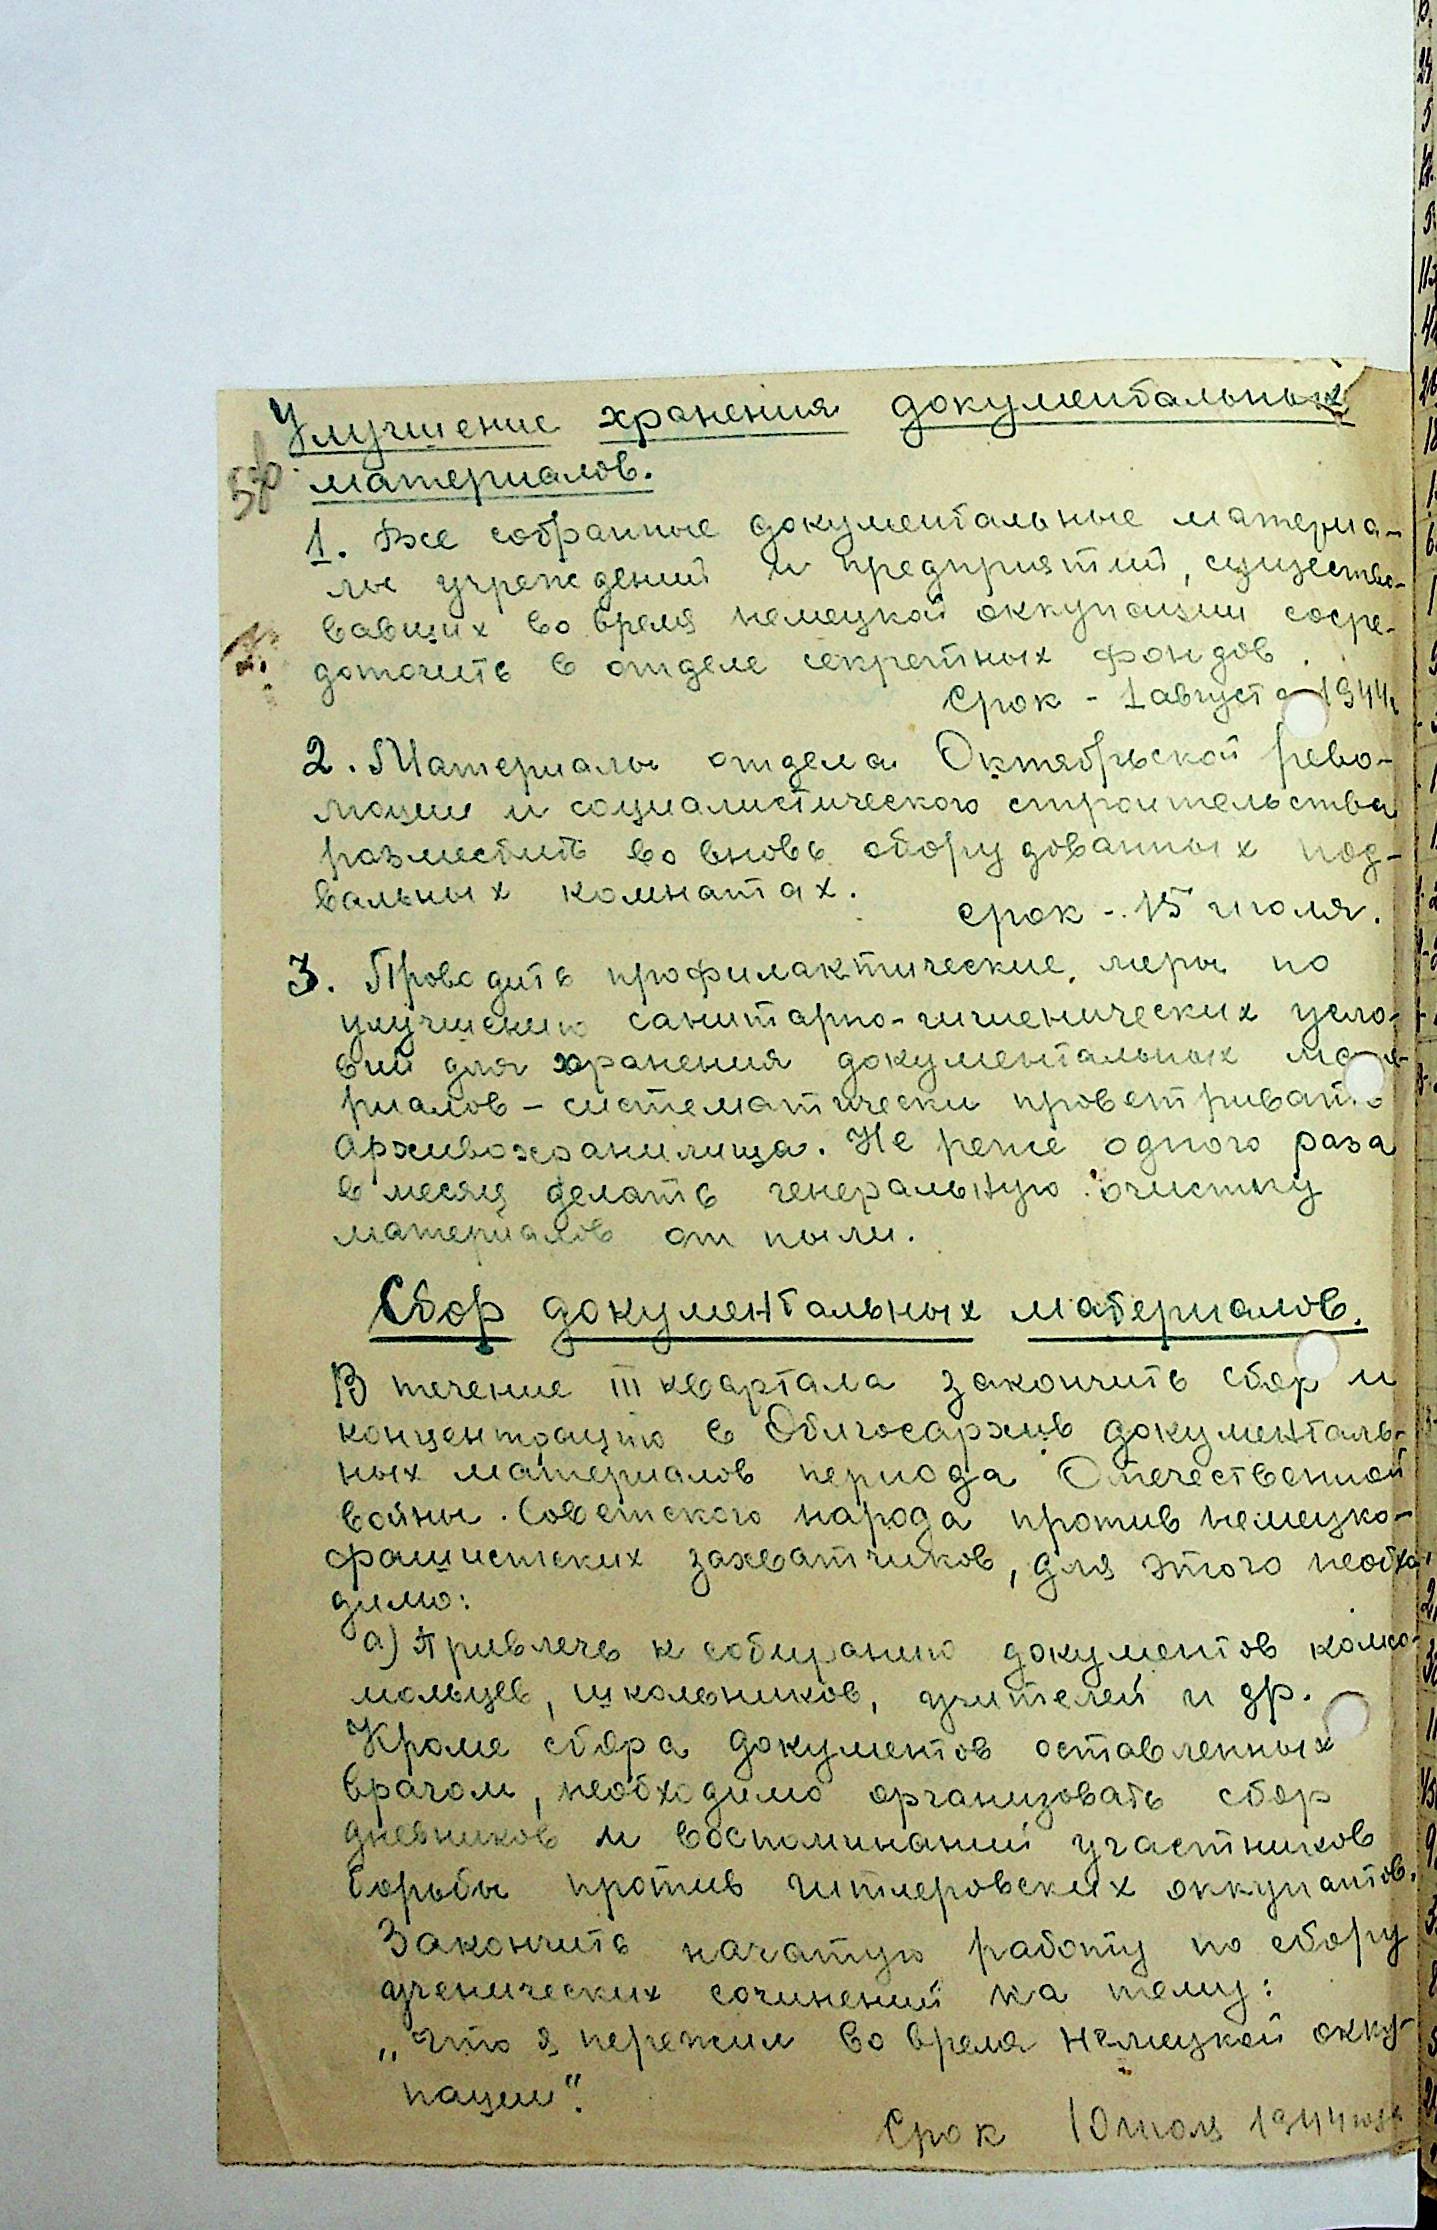 Улучшение хранения документальных
материалов.
1. Все собранные документальные материа-
лы учреждений и предприятий, существо-
вавших во время немецкой оккупации сосре-
доточить в отделе секретных фондов.
Срок - 1 августа 1944г
2. Материалы отдела Октябрьской рево-
люции и социалистического строительства
разместить во вновь оборудованных под-
вальных комнатах.
срок - 15 июля.
3. Проводить профилактические меры по
улучшению санитарно-гигиенических усло-
вий для хранения документальных мате-
риалов - систематически проветривать
архивохранилища. Не реже одного раза
в месяц делать генеральную очистку
материалов от пыли.
Сбор документальных материалов.
В течение III квартала закончить сбор и
концентрацию в Облгосархив документаль-
ных материалов периода Отечественной
войны Советского народа против немецко-
фашистских захватчиков, для этого необхо-
димо:
а) Привлечь к собиранию документов комсо-
мольцев, школьников, учителей и др.
Кроме сбора документов оставленных
врагом, необходимо организовать сбор
дневников и воспоминаний участников
борьбы против гитлеровских оккупантов.
Закончить начатую работу по сбору
ученических сочинений на тему:
„Что я пережил во время немецкой окку-
пации".
Срок 10 июля 1944 года